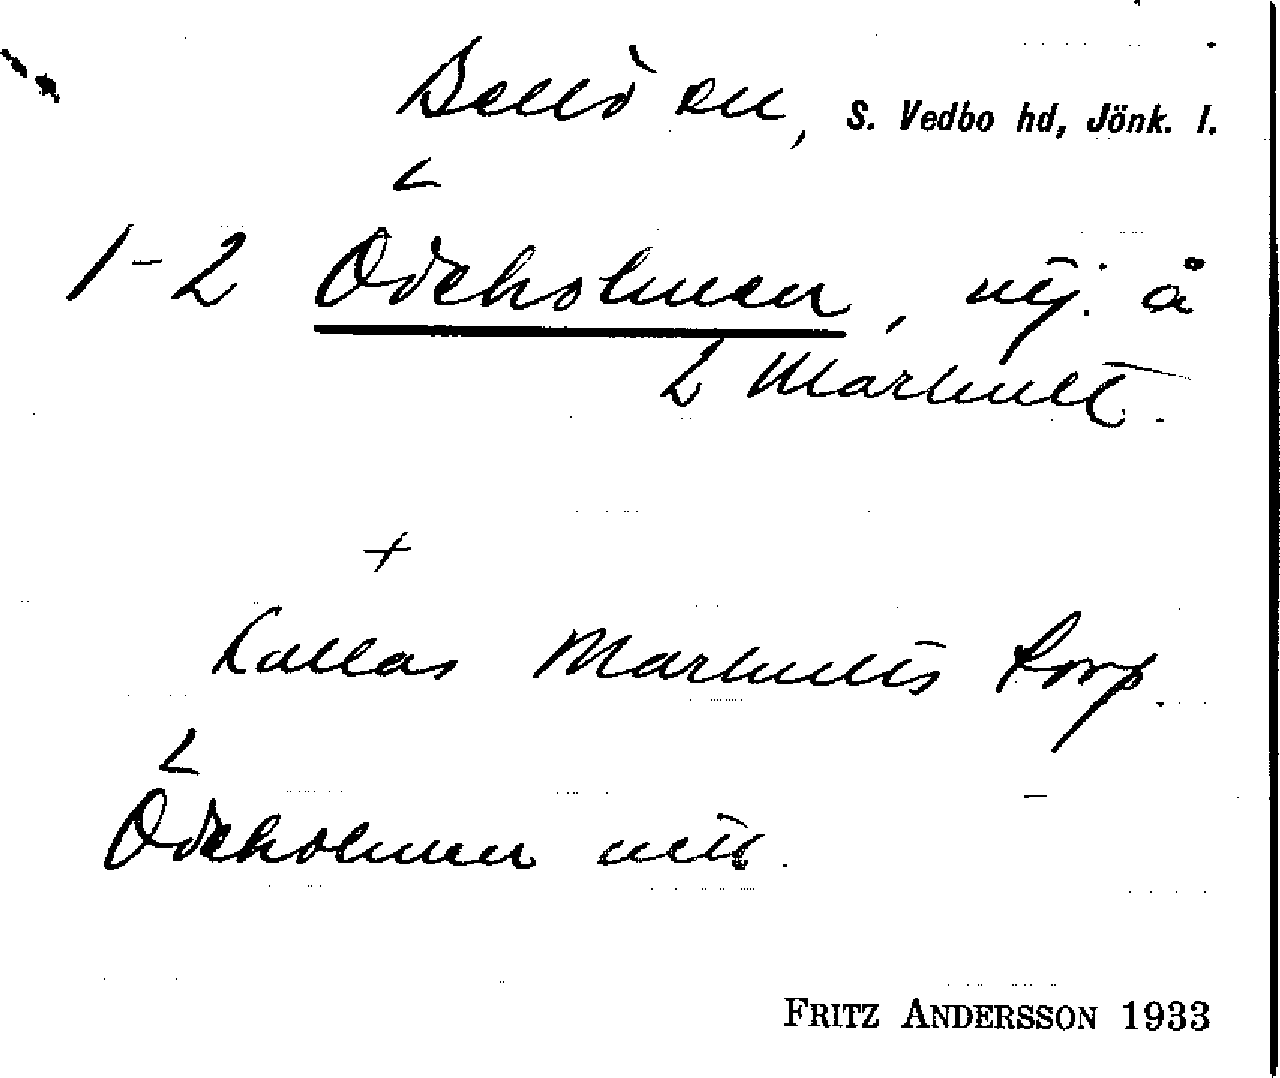 Bellö sn, S. Vedbo hd, Jönk. l.
1-2 Ödeholmen, utj. å
L Markult.
+
Kallas Markults torp.
L
Ödeholmen
FRITZ ANDERSSON 1933